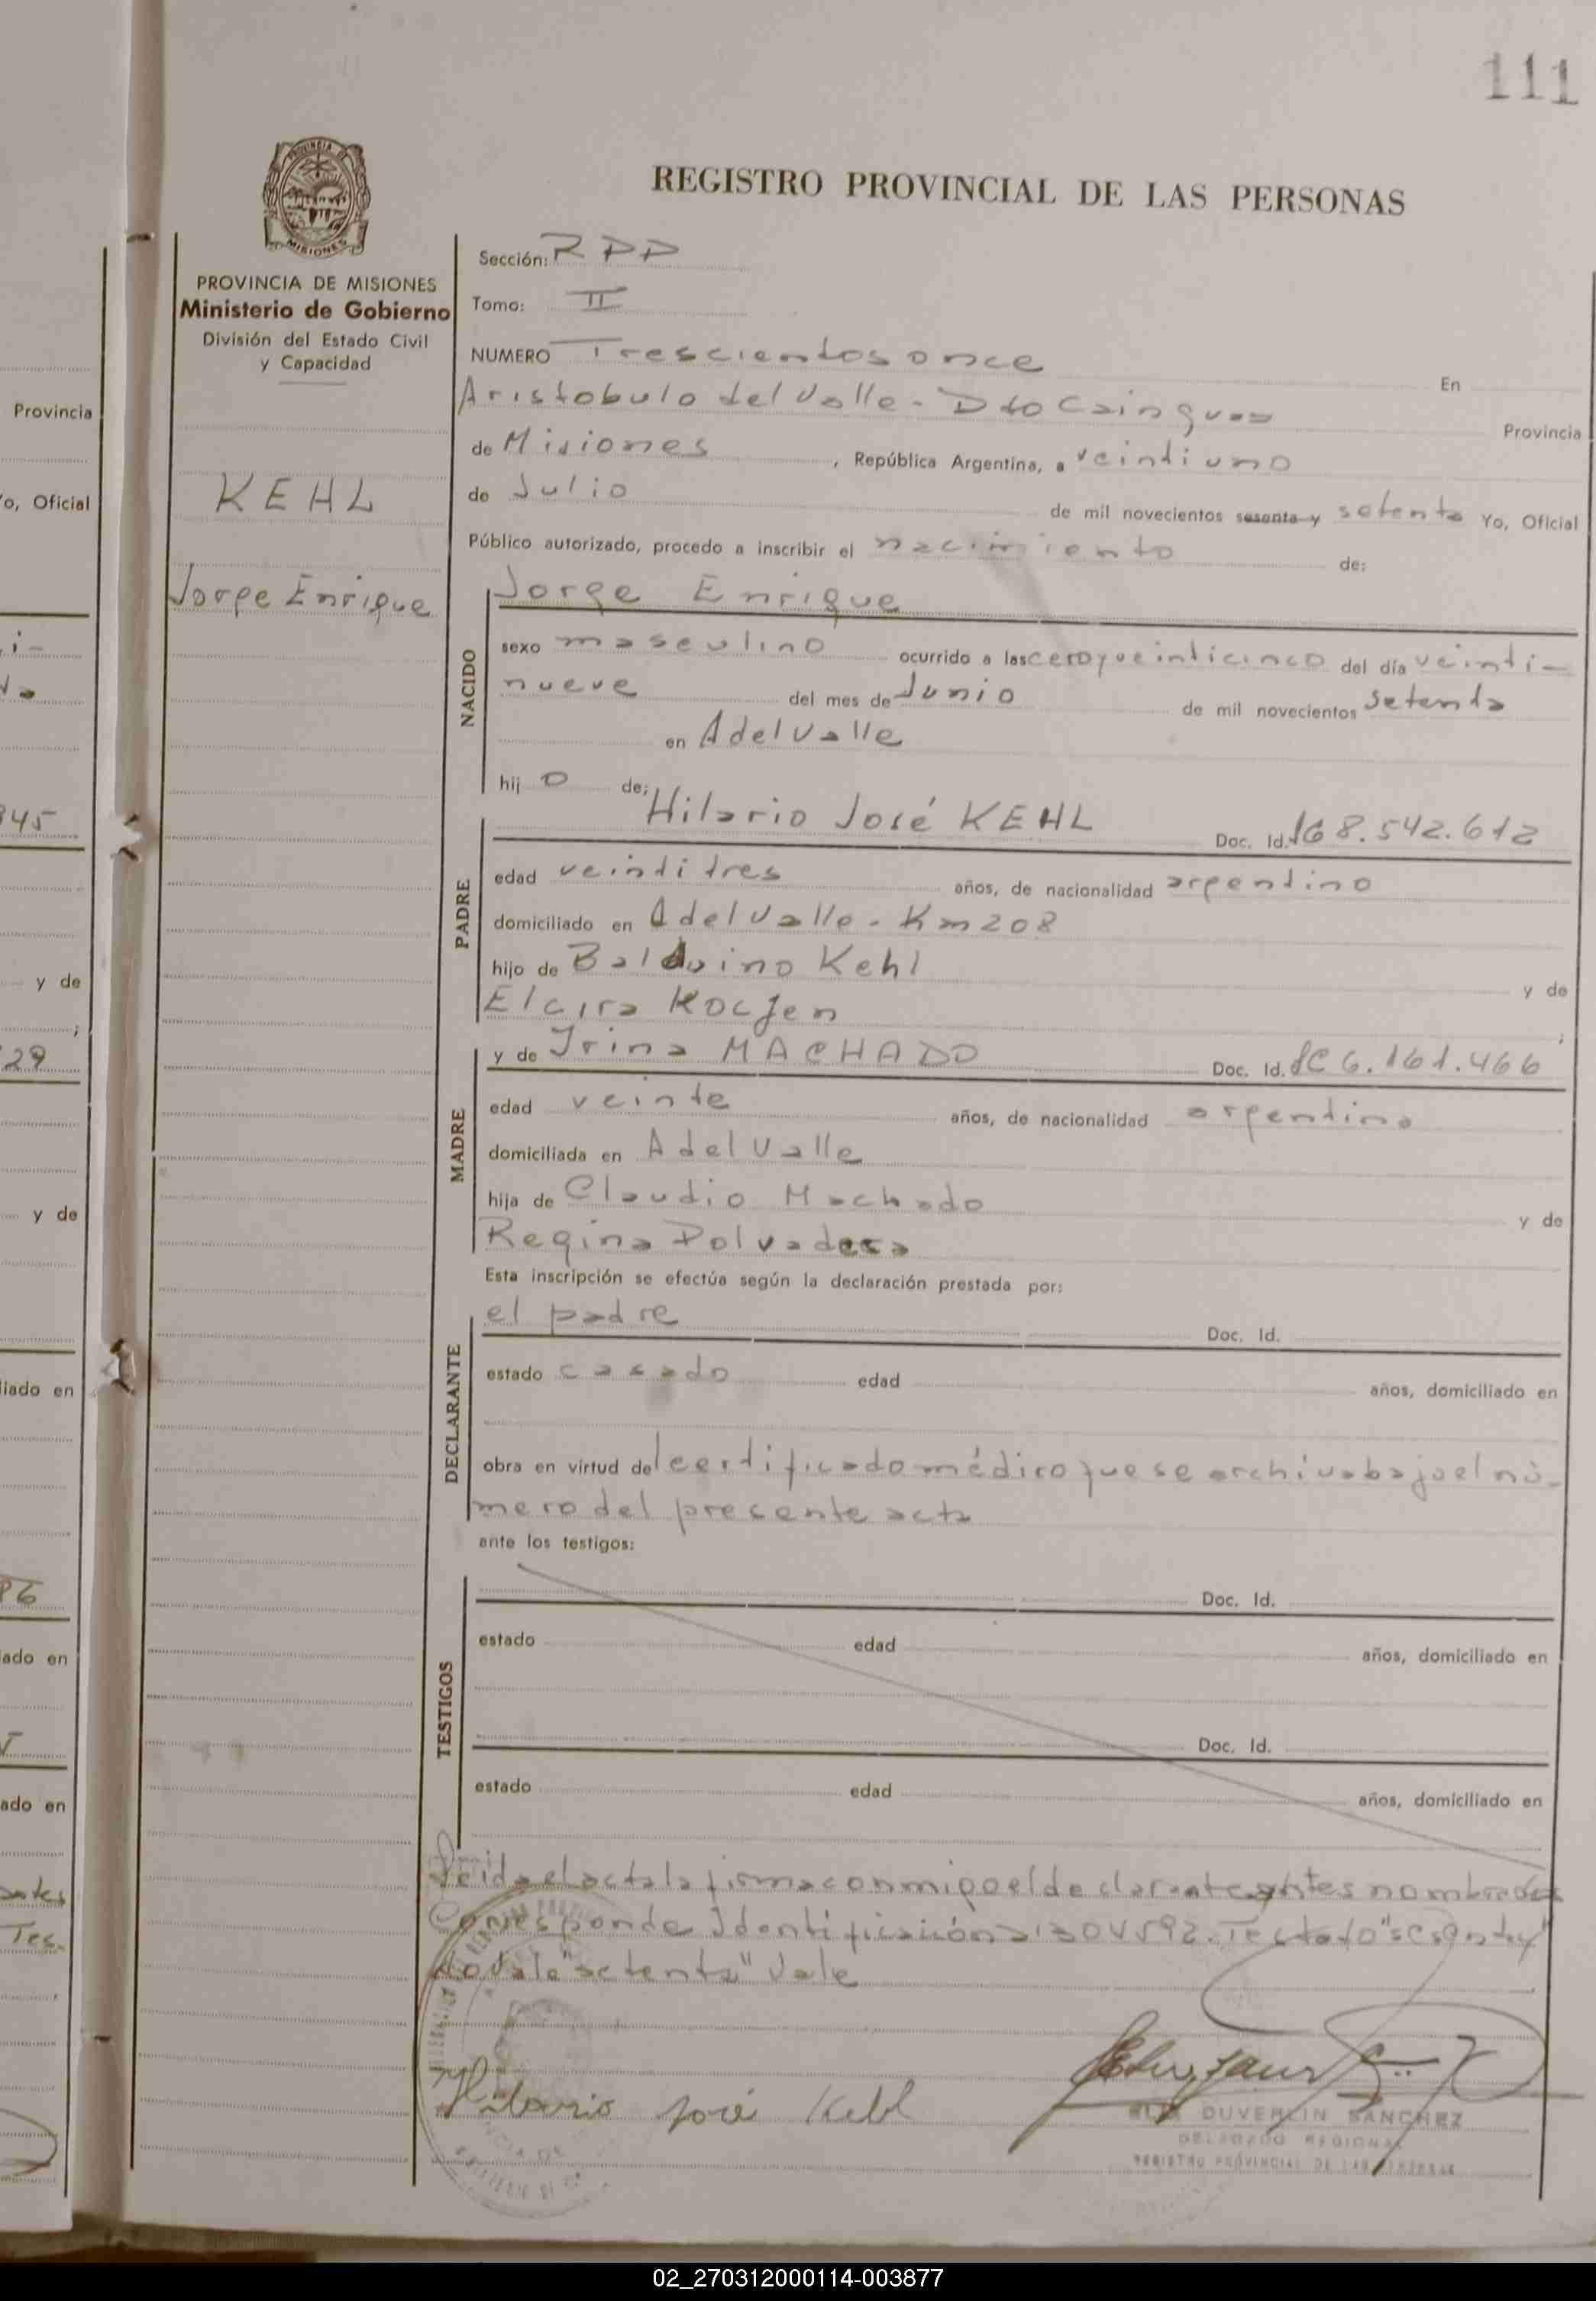 111
REGISTRO PROVINCIAL DE LAS PERSONAS
PROVINCIA DE
MISIONES
PROVINCIA DE MISIONES
Ministerio de Gobierno
División del Estado Civil
y Capacidad
KEHL
Jorge Enrique
Sección: RPP
Tomo: II
NUMERO Trescientos once En
Aristobulo del Valle - Dto Cainguas Provincia
de Misiones, República Argentina, a veintiuno
de Julio de mil novecientos sesenta y setenta Yo, Oficial
Público autorizado, procedo a inscribir el nacimiento de:
NACIDO
Jorge Enrique
sexo masculino ocurrido a las cero y veinticinco del día veinti-
nueve del mes de Junio de mil novecientos setenta
en A del Valle
hijo de:
PADRE
Hilario José KEHL Doc. Id. 8.542.612
edad veintitres años, de nacionalidad argentino
domiciliado en A del Valle - Km 208
hijo de Balduino Kehl y de
Elcira ;
MADRE
y de Irina MACHADO Doc. Id. LC 6.161.466
edad veinte años, de nacionalidad argentina
domiciliada en A del Valle
hija de Claudio Machado y de
Regina Polvadera
Esta inscripción se efectúa según la declaración prestada por:
DECLARANTE
el padre Doc. Id.
estado casado edad años, domiciliado en
obra en virtud del certificado médico que se archiva bajo el nú-
mero del presente acta
ante los testigos:
TESTIGOS
Doc. Id.
estado edad años, domiciliado en
Doc. Id.
estado edad años, domiciliado en
Leida el acta la firma conmigo el declarante antes nombrado
Corresponde Identificación Testado "sesenta y"
no vale "setenta" Vale
Hilario José Kehl
DUVERLIN SANCHEZ
DELEGADO REGIONAL
REGISTRO PROVINCIAL DE LAS PERSONAS
Provincia
Yo, Oficial
y de
29
y de
liado en
ado en
ado en
02_270312000114-003877